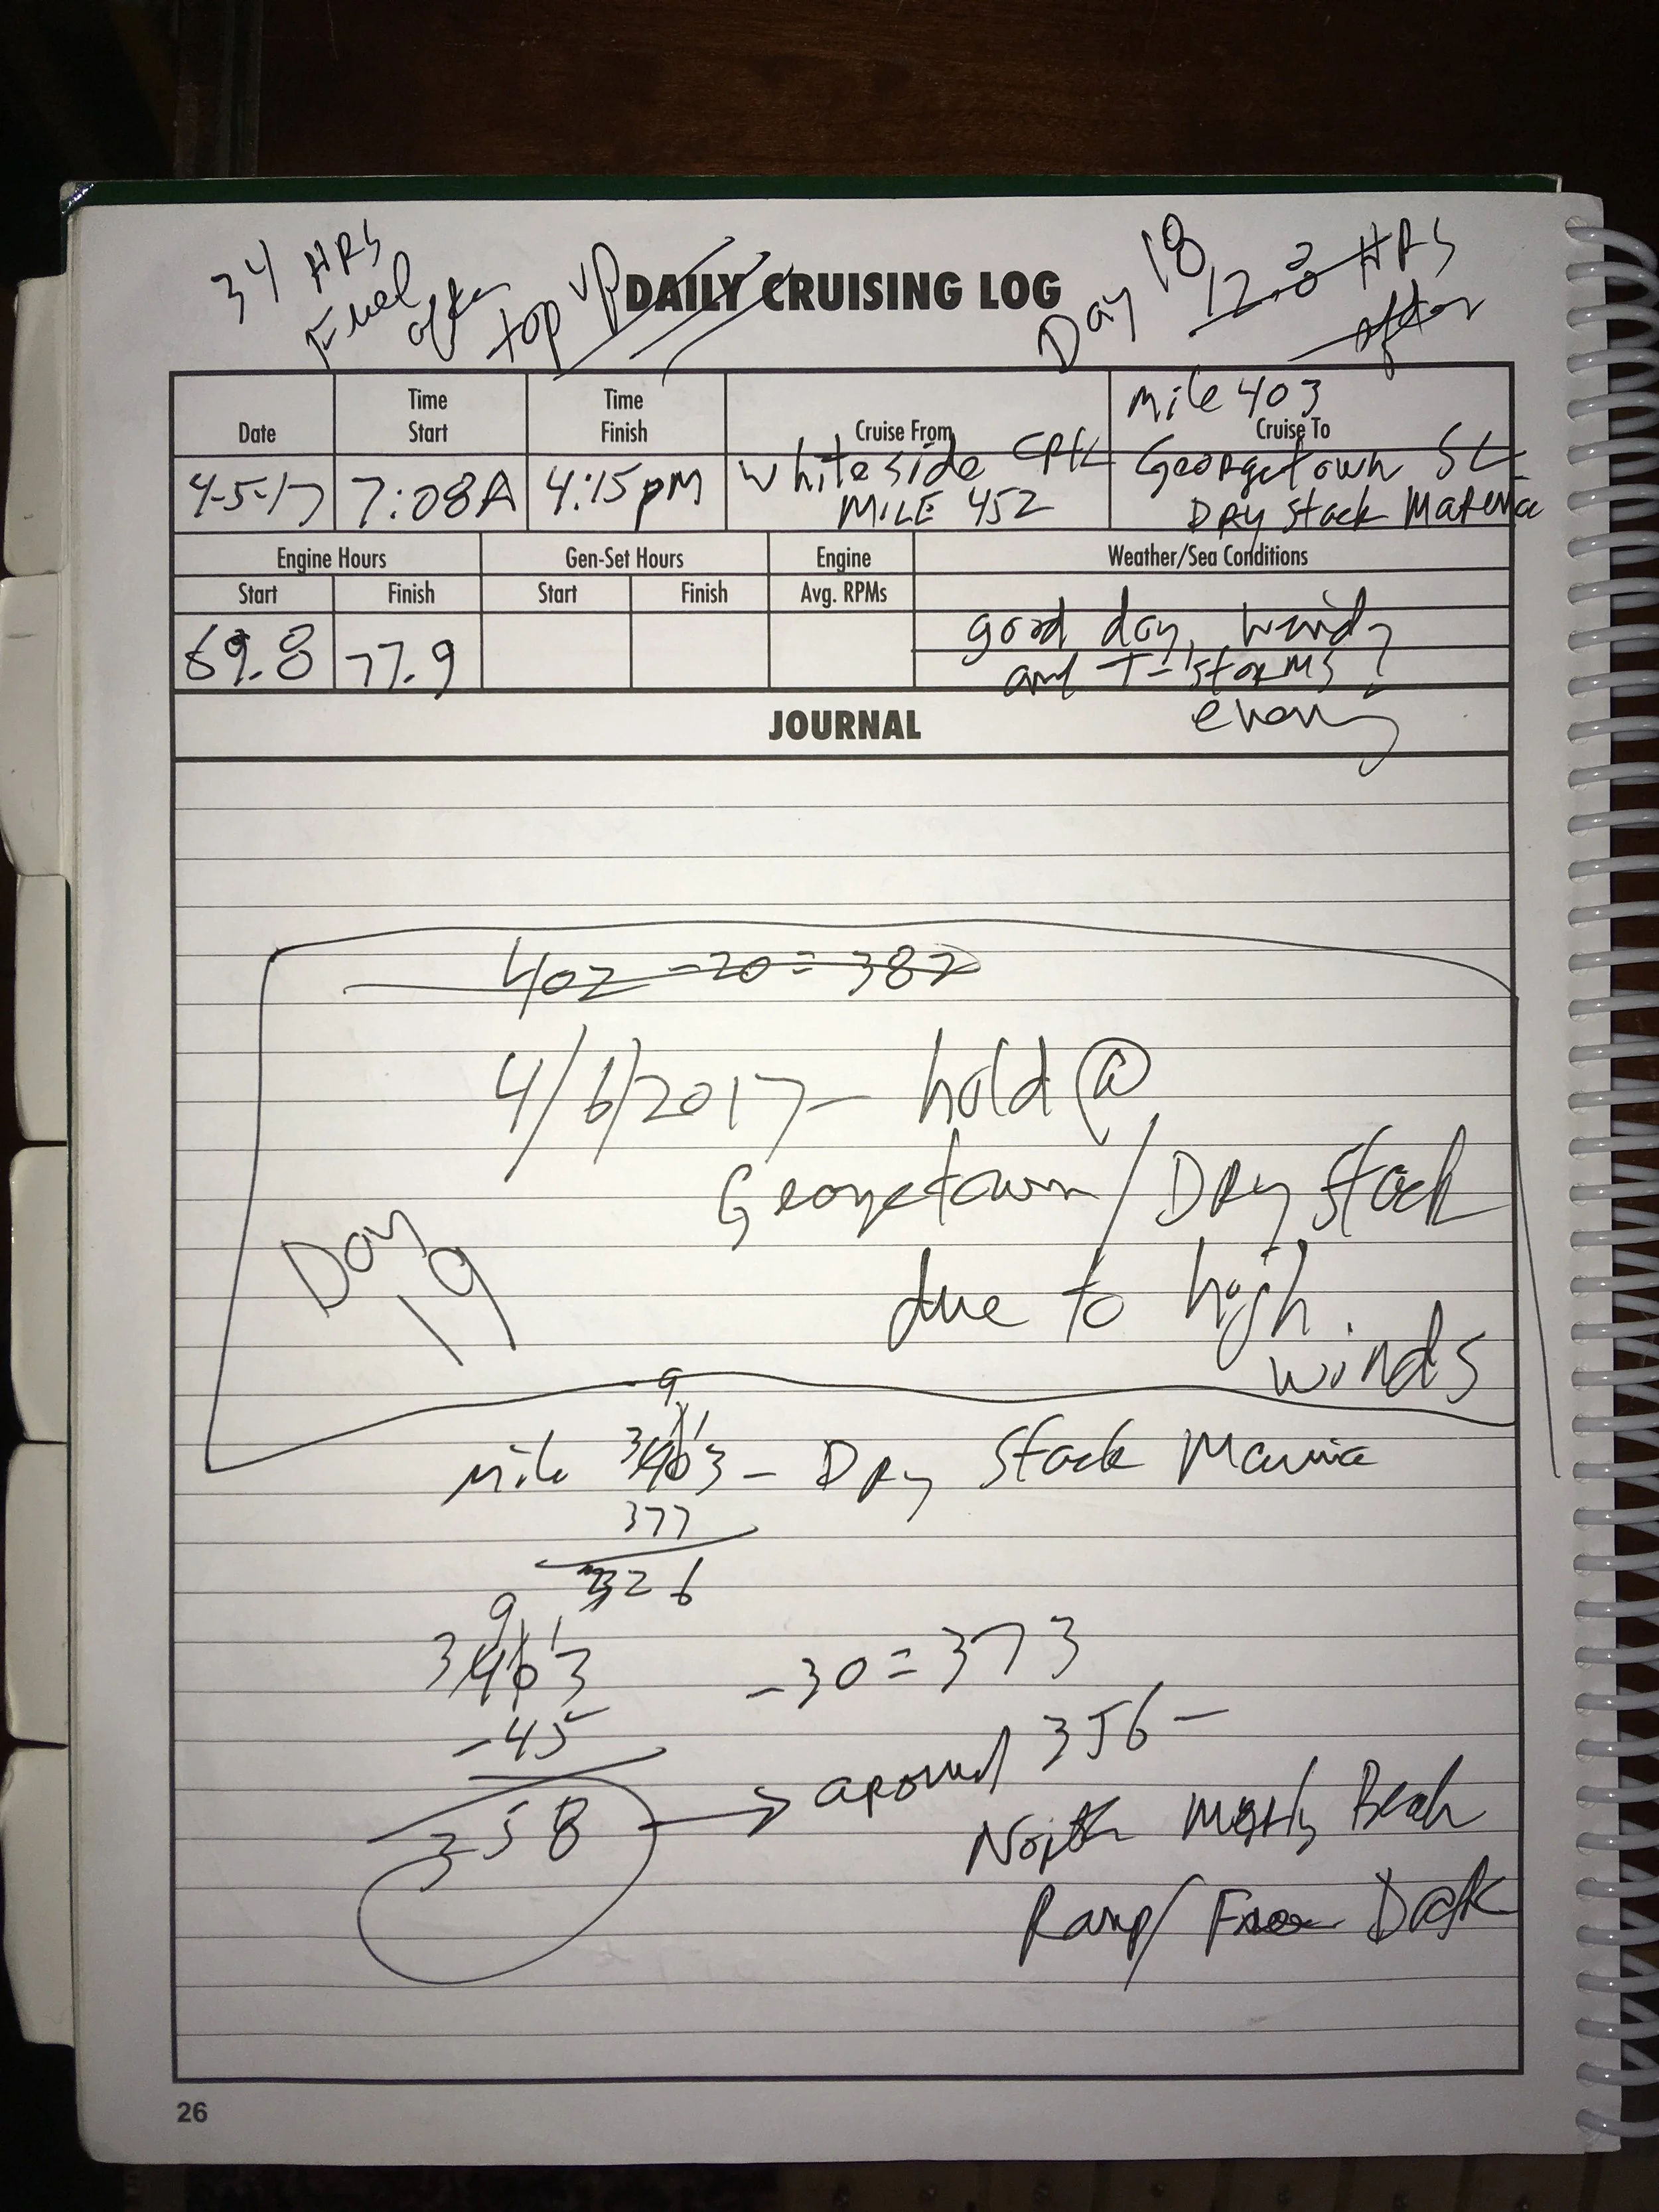 34 HRS
Fuel
after
top up
DAILY CRUISING LOG
Day 18
12.3 HRS
after
Date
Time
Start
Time
Finish
Cruise From
Mile 403
Cruise To
4-5-17
7:08A
4:15pm
Whiteside CRK
MILE 452
Georgetown SC
DRY Stack Marina
Engine Hours
Gen-Set Hours
Engine
Weather/Sea Conditions
Start
Finish
Start
Finish
Avg. RPMs
69.8
77.9
good day, windy
and T-storms
evening
JOURNAL
402 - 20 = 382
4/6/2017 - hold @
Georgetown / DRy Stack
Day
19
due to high
winds
9
Mile 3403 - DRy Stack Marina
377
326
9
3403
- 30 = 373
- 45
358
→ around 356 -
North Myrtle Beach
Ramp / Free Dock
26